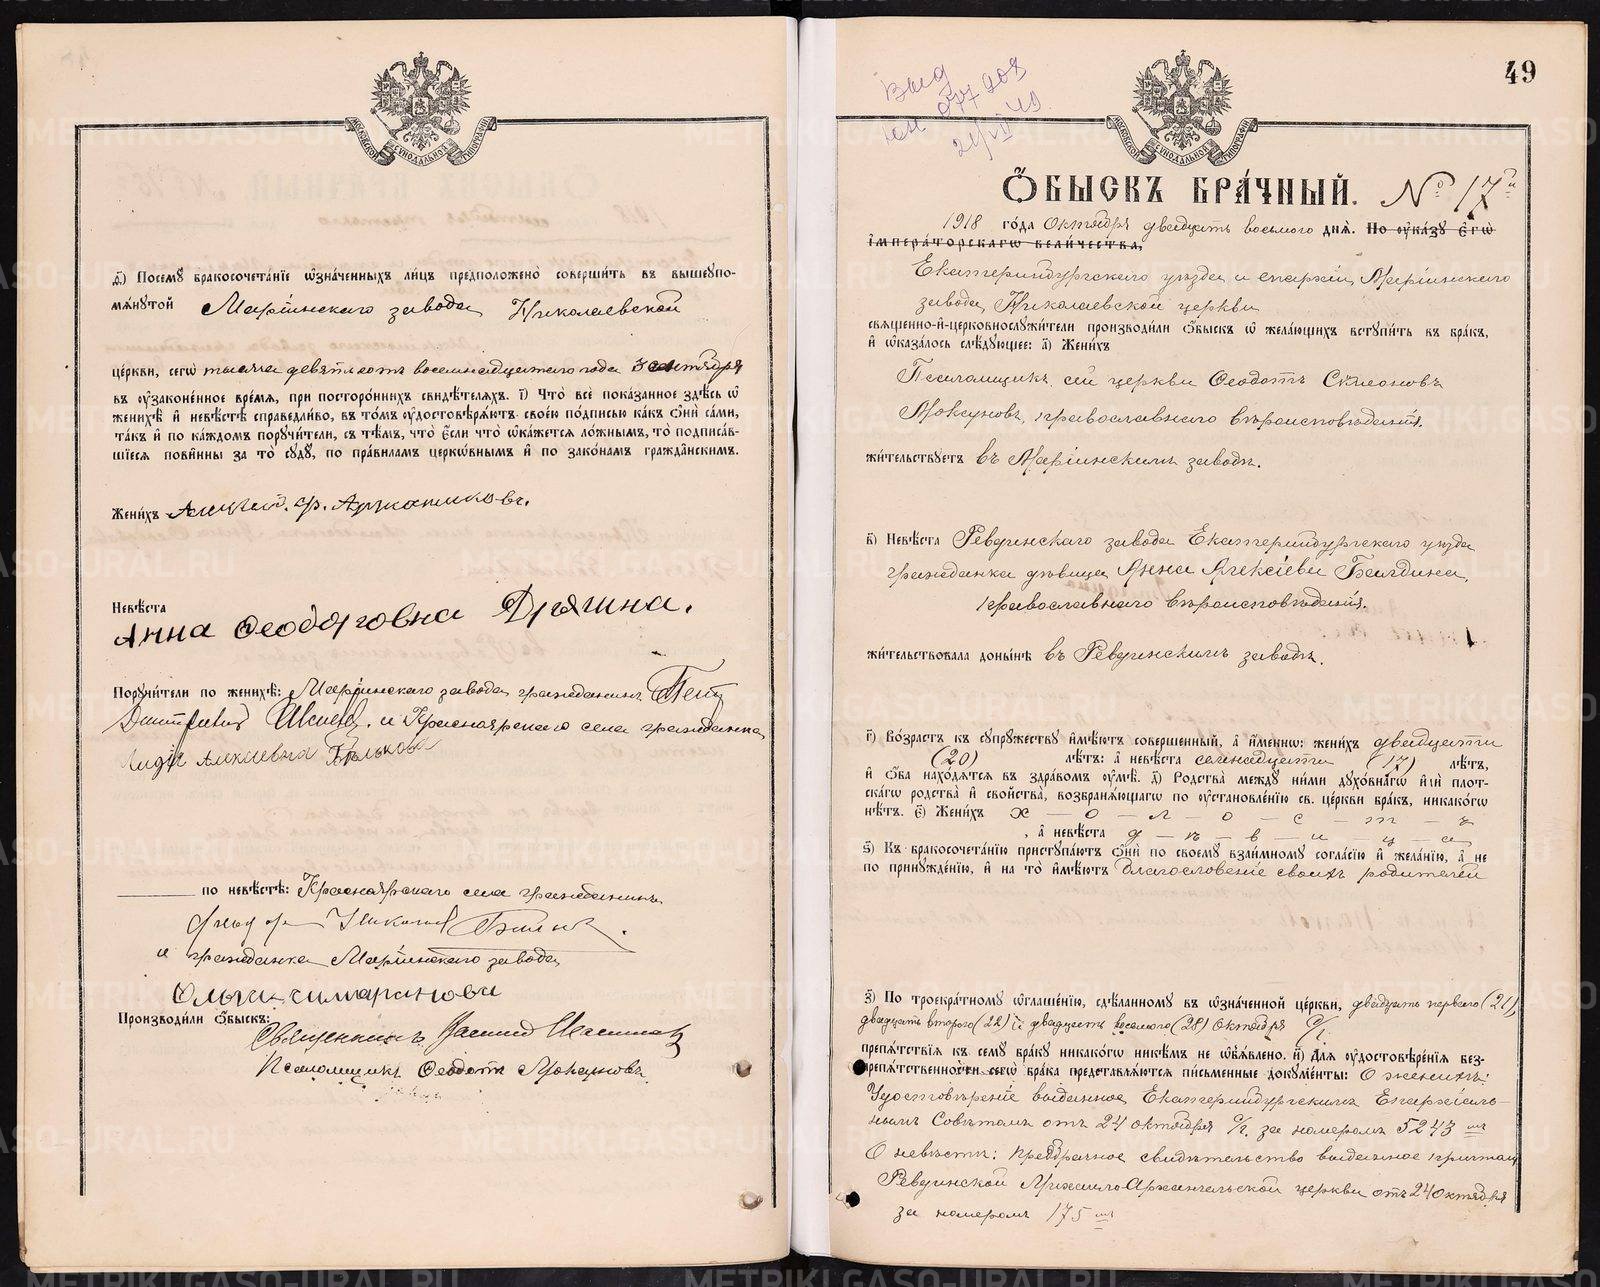 МОСКОВСКОЙ СѴНОДАЛЬНОЙ ТИПОГРАФІИ
д҃) Посемꙋ бракосочета́нїе ѡ҆зна́ченныхъ ли́цъ предположено̀ соверши́ть въ вышеꙋпо-
мѧ́нꙋтой Маріинскаго завода Николаевской
це́ркви, сегѡ̀ тысяча девятьсотъ восемнадцатаго года 3 сентября
въ ᲂу҆зако́ненное вре́мѧ, при посторо́ннихъ свидѣ́телѧхъ. і҃) Что̀ всѐ пока́занное здѣ́сь ѡ҆
женихѣ̀ и҆ невѣ́стѣ справедли́во, въ то́мъ ᲂу҆достовѣрѧ́ютъ свое́ю по́дписью ка́къ ѻ҆нѝ са́ми,
та́къ и҆ по ка́ждомъ порꙋчи́тели, съ тѣ́мъ, что̀ є҆́сли что̀ ѡ҆ка́жетсѧ ло́жнымъ, то̀ подписа́в-
шїесѧ пови́нны за то̀ сꙋдꙋ̀, по пра́виламъ церкѡ́внымъ и҆ по зако́намъ гражда́нскимъ.
Жени́хъ Алексѣй. Ф.
Невѣ́ста
Анна Ѳеодоровна Дрягина.
Порꙋчи́тели по женихѣ̀: Маріинскаго завода гражданинъ Петръ
Дмитріевъ и Красноярскаго села гражданка
Лидія Алексіевна Бѣлькова
по невѣ́стѣ: Красноярскаго села гражданинъ
и гражданка Маріинскаго завода
Ольга
Производи́ли ѻ҆́быскъ:
Священникъ
Псаломщикъ Ѳеодотъ Мокруновъ
49
Выд
21/VI 49.
МОСКОВСКОЙ СѴНОДАЛЬНОЙ ТИПОГРАФІИ
Ѻ҆́БЫСКЪ БРА́ЧНЫЙ. № 17й
1918 го́да Октября двадцать восьмого днѧ̀. По ᲂу҆ка́зꙋ є҆гѡ̀
і҆мпера́торскагѡ вели́чества,
Екатеринбургскаго уѣзда и епархіи, Маріинскаго
завода, Николаевской церкви
свѧще́нно-и҆-церковнослꙋжи́тели производи́ли ѻ҆́быскъ ѡ҆ жела́ющихъ встꙋпи́ть въ бра́къ,
и҆ ѡ҆каза́лось слѣ́дꙋющее: а҃) Жени́хъ
Псаломщикъ сей церкви Ѳеодотъ
православнаго вѣроисповѣданія.
жи́тельствꙋетъ въ Маріинскомъ заводѣ.
в҃) Невѣ́ста Ревдинскаго завода Екатеринбургскаго уѣзда
гражданка дѣвица Анна Алексіева Балдина,
православнаго вѣроисповѣданія.
жи́тельствовала доны́нѣ въ Ревдинскомъ заводѣ.
г҃) Во́зрастъ къ сꙋпрꙋ́жествꙋ и҆мѣ́ютъ соверше́нный, а҆ и҆́менно: жени́хъ двадцати
(20) лѣ́тъ: а҆ невѣ́ста семнадцати (17) лѣ́тъ,
и҆ ѻ҆́ба нахо́дѧтсѧ въ здра́вомъ ᲂу҆мѣ̀. д҃) Родства̀ междꙋ̀ ни́ми дꙋхо́внагѡ и҆лѝ пло́т-
скагѡ родства̀ и҆ свойства̀, возбранѧ́ющагѡ по ᲂу҆становле́нїю св. це́ркви бра́къ, никако́гѡ
нѣ́тъ. є҃) Жени́хъ х — о — л — о — с — т — ъ
, а҆ невѣ́ста д — ѣ — в — и — ц — а
ѕ҃) Къ бракосочета́нїю пристꙋпа́ютъ ѻ҆нѝ по своемꙋ̀ взаи́мномꙋ согла́сїю и҆ жела́нїю, а҆ не
по принꙋжде́нїю, и҆ на то̀ и҆мѣ́ютъ благословеніе своихъ родителей
з҃) По троекра́тномꙋ ѡ҆глаше́нїю, сдѣ́ланномꙋ въ ѡ҆зна́ченной це́ркви, двадцать перваго (21),
двадцать второго (22) и двадцать восьмого (28) Октября с/г.
препѧ́тствїѧ къ семꙋ̀ бра́кꙋ никако́гѡ никѣ́мъ не ѡ҆б̾ѧ́влено. и҃) Для̀ ᲂу҆достовѣре́нїѧ без-
препѧ́тственности сегѡ̀ бра́ка представлѧ́ютсѧ пи́сьменные докꙋме́нты: О женихѣ:
Удостовѣреніе выданное Екатеринбургскимъ Епархіаль-
нымъ Совѣтомъ отъ 24 октября с/г. за номеромъ 5243 мъ
О невѣстѣ: Предбрачное свидѣтельство выданное причтомъ
Ревдинской Михаило-Архангельской церкви отъ 24 октября
за номеромъ 175 мъ